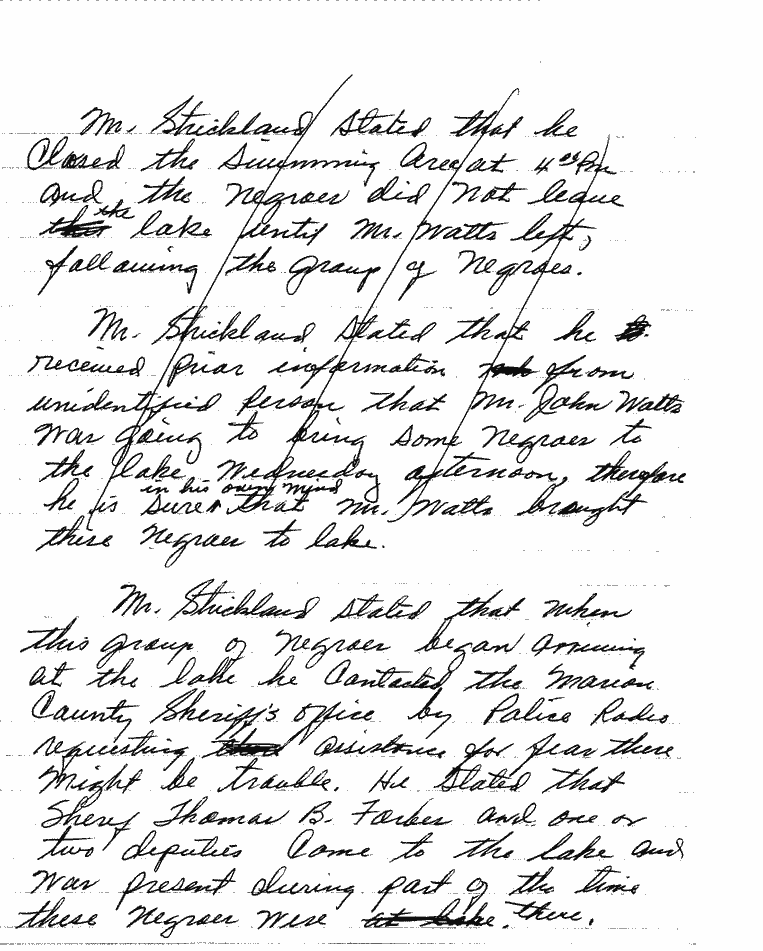 Mr. Strickland stated that he
Closed the Swimming Area at 4 00 Pm
and the Negroes did not leave
this the lake until Mr. Watts left,
following the group of Negroes.
Mr. Strickland stated that he
received prior information from
unidentified person that Mr. John Watts
was going to bring some Negroes to
the lake Wednesday afternoon, therefore
he is sure in his own mind that Mr. Watts brought
these Negroes to lake.
Mr. Strickland stated that when
this group of Negroes began arriving
at the lake he Contacted the Marion
County Sheriff's office by Police Radio
requesting assistance for fear there
might be trouble. He stated that
Sheriff Thomas B. Forbes and one or
two deputies Come to the lake and
was present during part of the time
these Negroes were at lake. there.